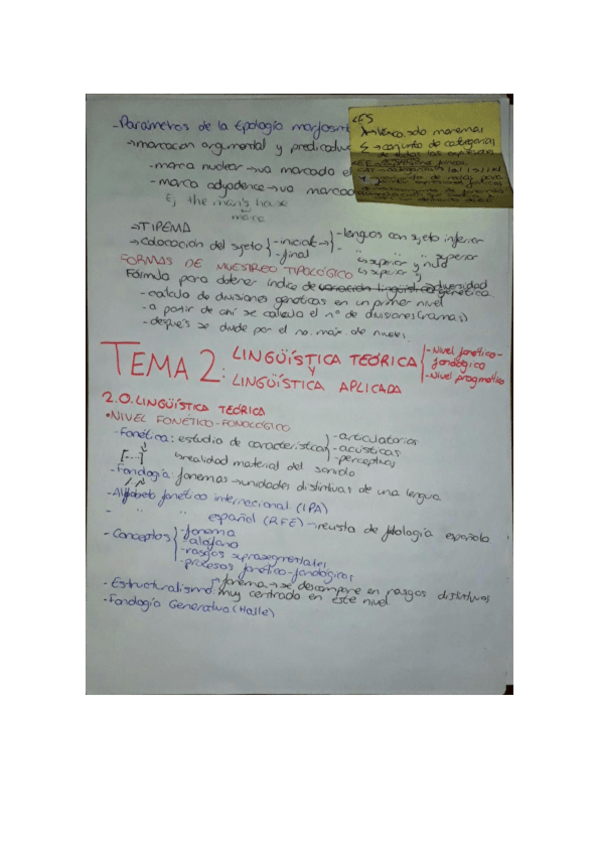 -Parámetros de la tipología morfosint
→marcación argumental y predicativa
-marca nuclear→va marcado el
-marca adyacente→va marcado
Ej the men's house
marc
→TIPEMA
→Colocación del sujeto -inicial→ -lenguas con sujeto inferior
-final - " " " superior
↳superior y nulo
↳superior y
FORMAS DE MUESTREO TIPOLÓGICO
Fórmula para obtener índice de variación lingüística diversidad genética.
-calculo de divisiones genéticas en un primer nivel
-a partir de ahí se calcula el nº de divisiones (ramas)
-después se divide por el no. máx. de niveles.
LES
→conjunto de categorías
TEMA 2: LINGÜÍSTICA TEÓRICA Y LINGÜÍSTICA APLICADA
-Nivel fonético-fonológico
-Nivel pragmático
2.0. LINGÜÍSTICA TEÓRICA
•NIVEL FONÉTICO-FONOLÓGICO
-Fonética: estudio de características -articulatorias
-acústicas
-perceptivas
[...] ↳realidad material del sonido
-Fonología: fonemas→unidades distintivas de una lengua
/ /
-Alfabeto fonético internacional (IPA)
- " " español (RFE)→revista de filología española
-Conceptos -fonema
-alófono
-rasgos suprasegmentales
-procesos fonético-fonológicos
-Estructuralismo: fonema→se descompone en rasgos distintivos
muy centrado en este nivel
-Fonología Generativa (Halle)